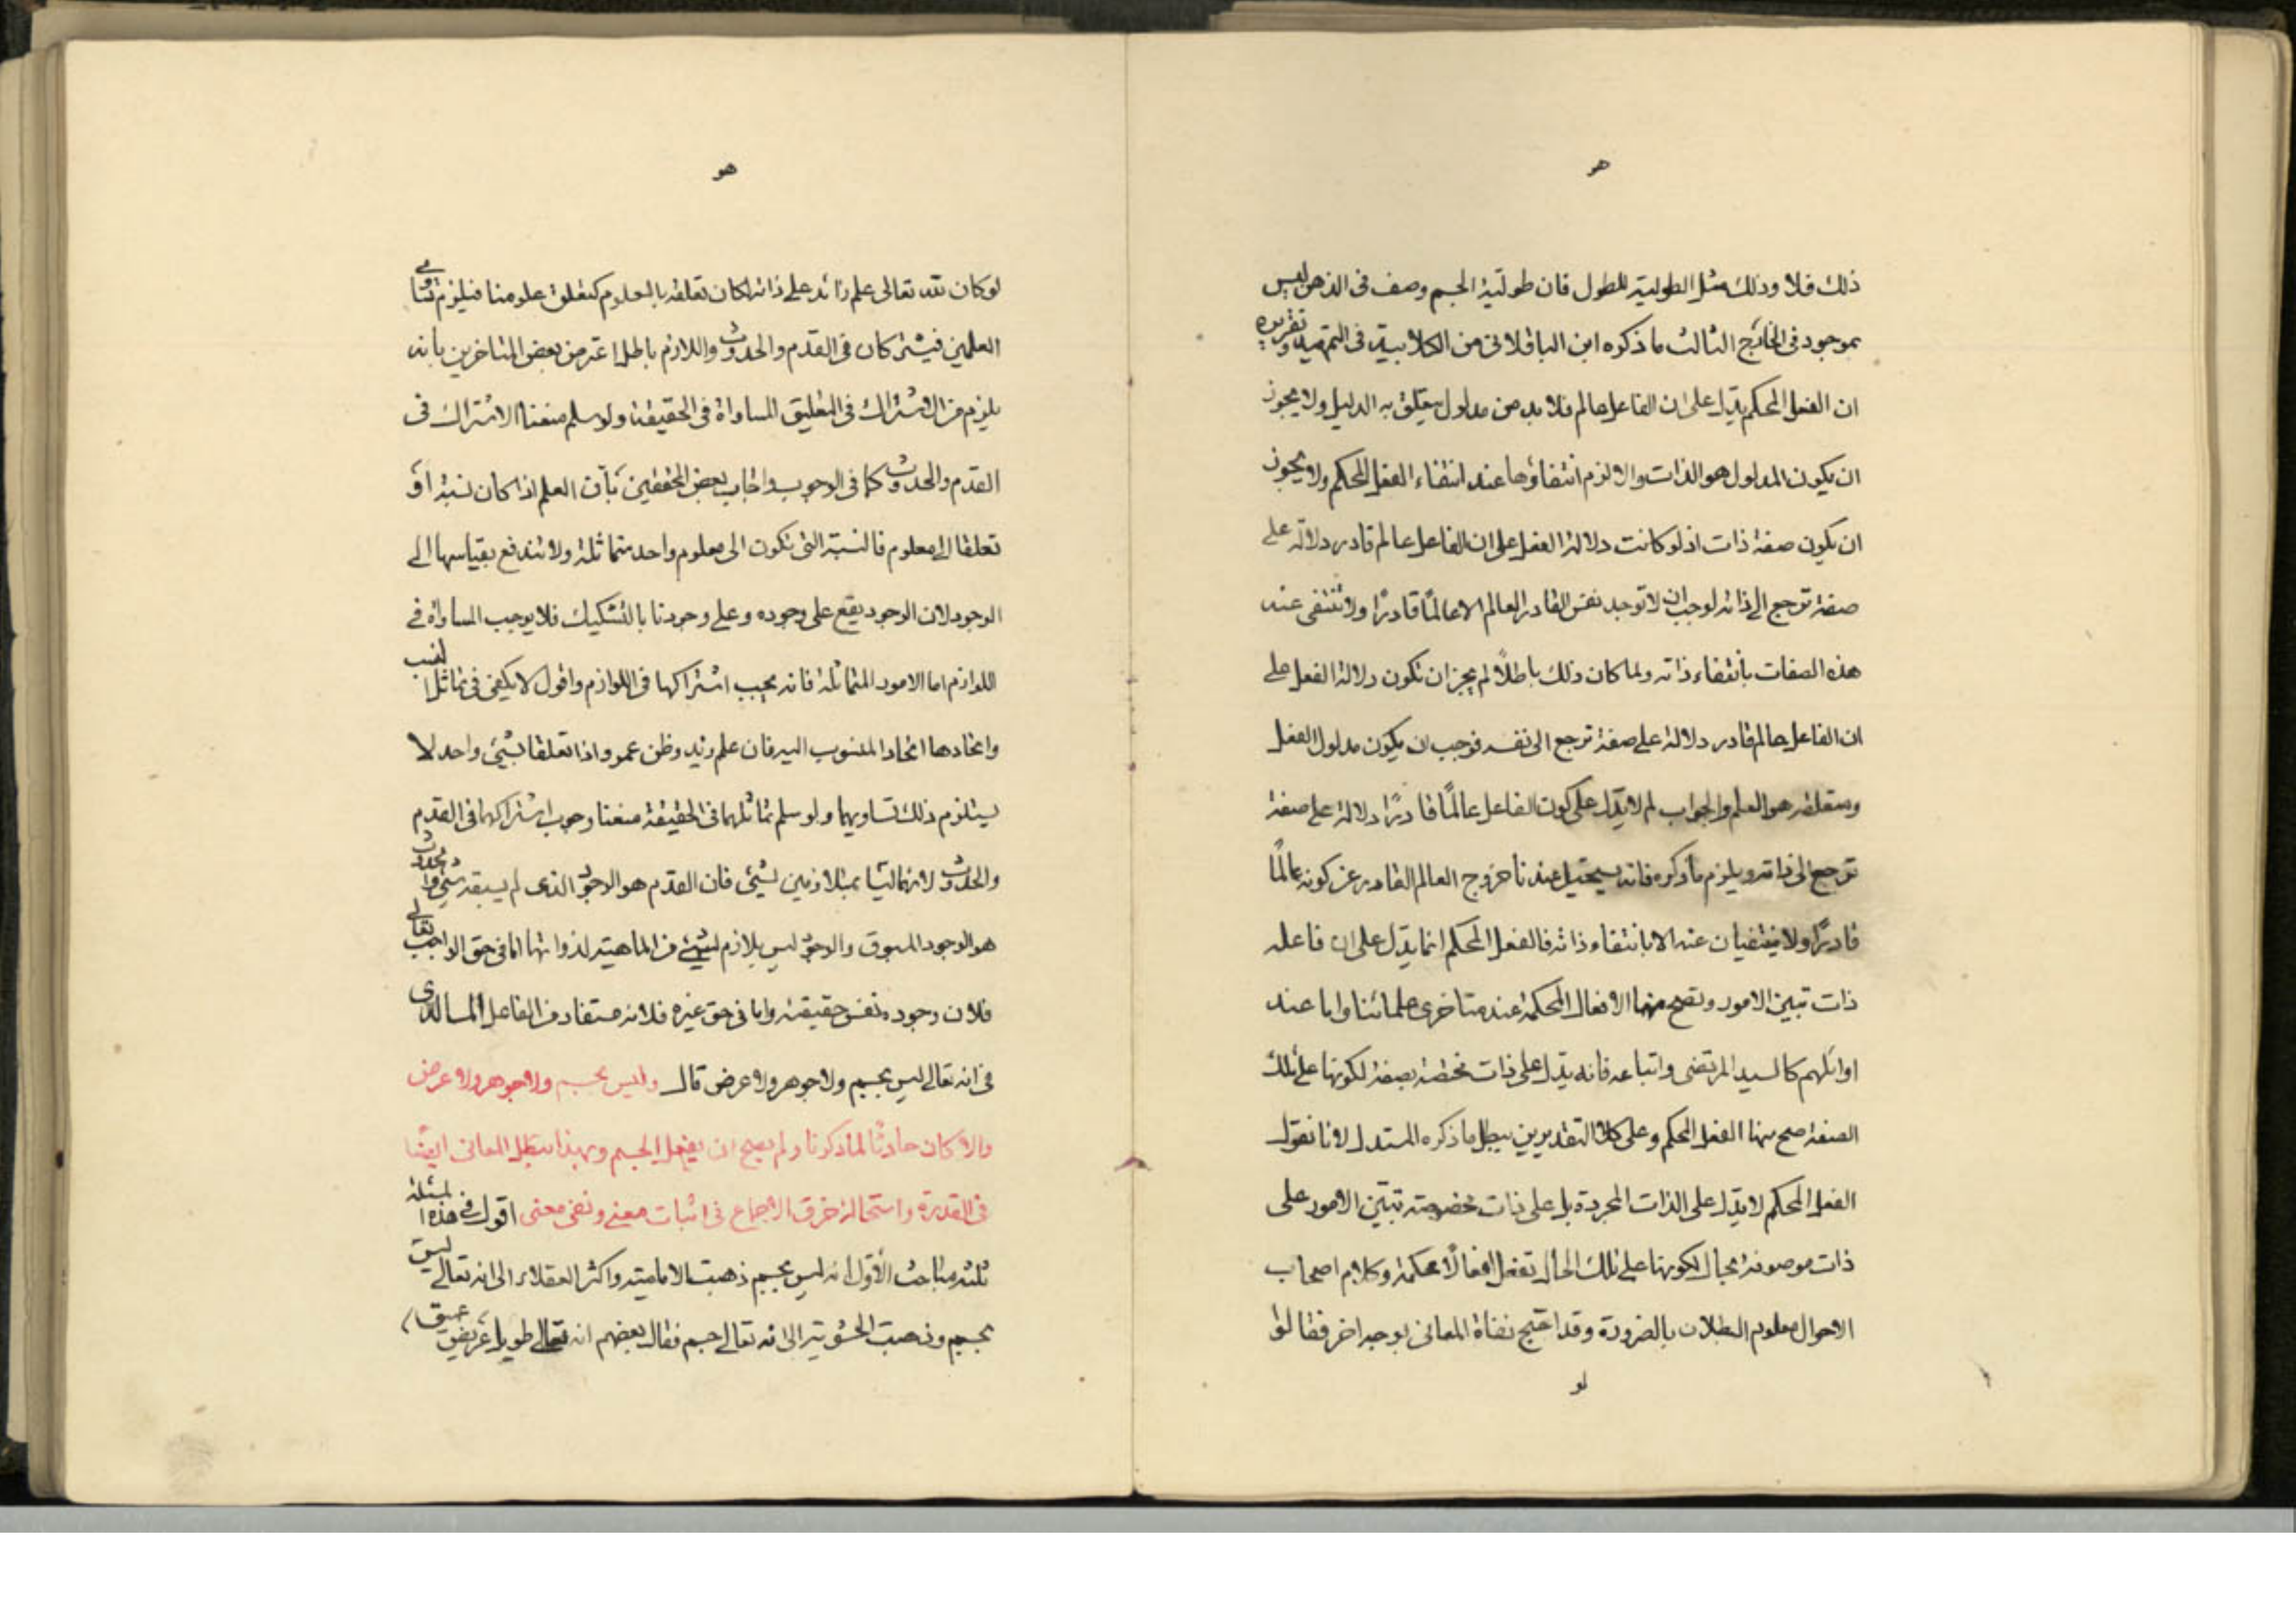 هو
ذلك فلا وذلك مثل الطولية للطول فان طولية الجسم وصف فى الذهن ليس
بموجود فى الخارج الثالث ما ذكره ابن الباقلانى من الكلابية فى التمهيد وتقريره
ان الفعل المحكم يدل على ان الفاعل عالم فلا بد من مدلول يتعلق به الدليل ولا يجوز
ان يكون المدلول هو الذات والا لزم انتفاؤها عند انتفاء الفعل المحكم ولا يجوز
ان يكون صفة ذات اذ لو كانت دلالة الفعل على ان الفاعل عالم قادر دلالة على
صفة ترجع الى ذاته لوجب ان لا توجد نفس القادر العالم الا عالمًا قادرًا ولا تنتفى عنه
هذه الصفات بانتفاء ذاته ولما كان ذلك باطلًا لم يجز ان تكون دلالة الفعل على
ان الفاعل عالم قادر دلالة على صفة ترجع الى نفسه فوجب ان يكون مدلول الفعل
ومتعلقه هو العلم والجواب لم لا يدل على كون الفاعل عالمًا قادرًا دلالة على صفة
ترجع الى ذاته ويلزم ما ذكره فانه يستحيل عندنا خروج العالم القادر عن كونه عالمًا
قادرًا ولا ينتفيان عنه الا بانتفاء ذاته فالفعل المحكم انما يدل على ان فاعله
ذات تبين الامور وتصح منها الافعال المحكمة عند متاخرى علمائنا واما عند
اوائلهم كالسيد المرتضى واتباعه فانه يدل على ذات مختصة بصفة لكونها على تلك
الصفة صح منها الفعل المحكم وعلى كلا التقديرين يبطل ما ذكره المستدل لانا نقول
الفعل المحكم لا يدل على الذات المجردة بل على ذات مخصوصة تتبين الامور على
ذات موصوفة بحال لكونها على تلك الحال تفعل افعالًا محكمة وكلام اصحاب
الاحوال معلوم البطلان بالضرورة وقد احتج نفاة المعانى بوجه اخر فقالوا
لو
هو
لو كان لله تعالى علم زائد على ذاته لكان تعلقه بالمعلوم كتعلق علومنا فيلزم تساوى
العلمين فيشتركان فى القدم والحدوث واللازم باطل اعترض بعض المتاخرين بانه
يلزم من الاشتراك فى التعليق المساواة فى الحقيقة ولو سلم منعنا الاشتراك فى
القدم والحدوث كما فى الوجوب واجاب بعض المحققين بأن العلم اذا كان نسبة أو
تعلقا الى معلوم فالنسبة التى تكون الى معلوم واحد متماثلة ولا تندفع بقياسها الى
الوجود لان الوجود يقع على وجوده وعلى وجودنا بالتشكيك فلا يوجب المساواة فى
اللوازم اما الامور المتماثلة فانه يجب اشتراكها فى اللوازم واقول لا يكفى فى تماثل النسب
واتحادها اتحاد المنسوب اليه فان علم زيد وظن عمرو اذا تعلقا بشيئ واحد لا
يستلزم ذلك تساويهما ولو سلم تماثلهما فى الحقيقة منعنا وجوب اشتراكهما فى القدم
والحدوث لانهما ليسا بمتلازمين لشيئ فان القدم هو الوجود الذى لم يسبقه شيئ والحدوث
هو الوجود المسبوق والوجود ليس بلازم لشيئ من الماهية لذواتها اما فى حق الواجب تعالى
فلان وجوده نفس حقيقته واما فى حق غيره فلانه مستفاد من الفاعل
فى انه تعالى ليس بجسم ولا جوهر ولا عرض قال وليس بجسم ولا جوهر ولا عرض
والا كان حادثًا لما ذكرنا ولم يصح ان يفعل الجسم وبهذا يبطل المعانى ايضًا
فى القدرة واستحالة خرق الاجماع فى اثبات معنى ونفى معنى اقول فى هذه المسئلة
ثلثة مباحث الأول انه ليس بجسم ذهبت الامامية واكثر العقلاء الى انه تعالى ليس
بجسم وذهبت الحشوية الى انه تعالى جسم فقال بعضهم انه تعالى طويل عريض عميق